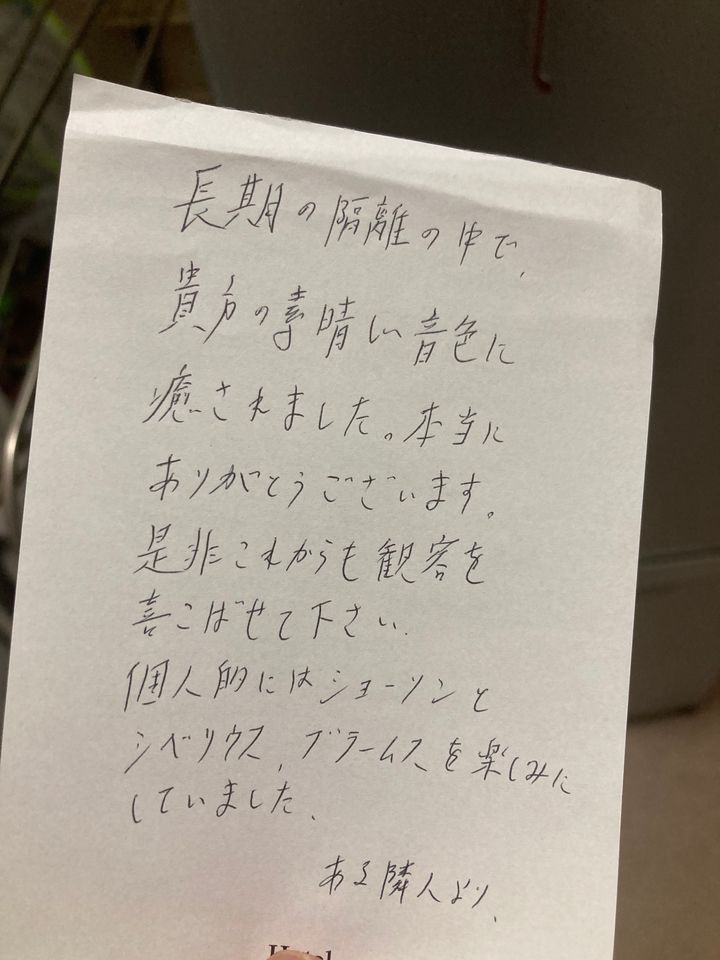 長期の隔離の中で、
貴方の素晴しい音色に
癒されました。本当に
ありがとうございます。
是非これからも観客を
喜こばせて下さい。
個人的にはショーソンと
シベリウス、ブラームスを楽しみに
していました。
ある隣人より、
Hotel